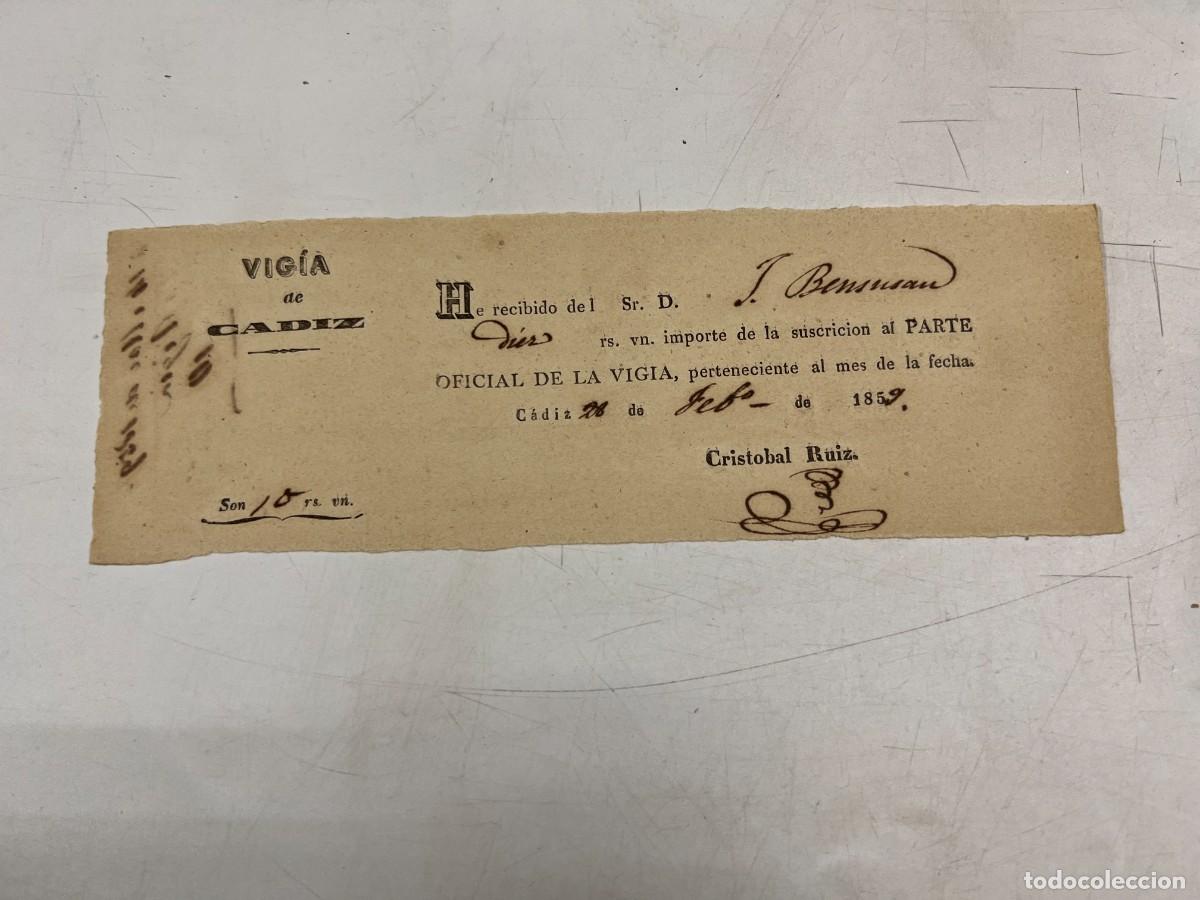 VIGÍA
de
CADIZ
Son 10 rs. vn.
He recibido del Sr. D. J. Bensusan
diez rs. vn. importe de la suscricion al PARTE
OFICIAL DE LA VIGIA, perteneciente al mes de la fecha.
Cádiz 28 de Febo de 1859.
Cristobal Ruiz.
todocoleccion